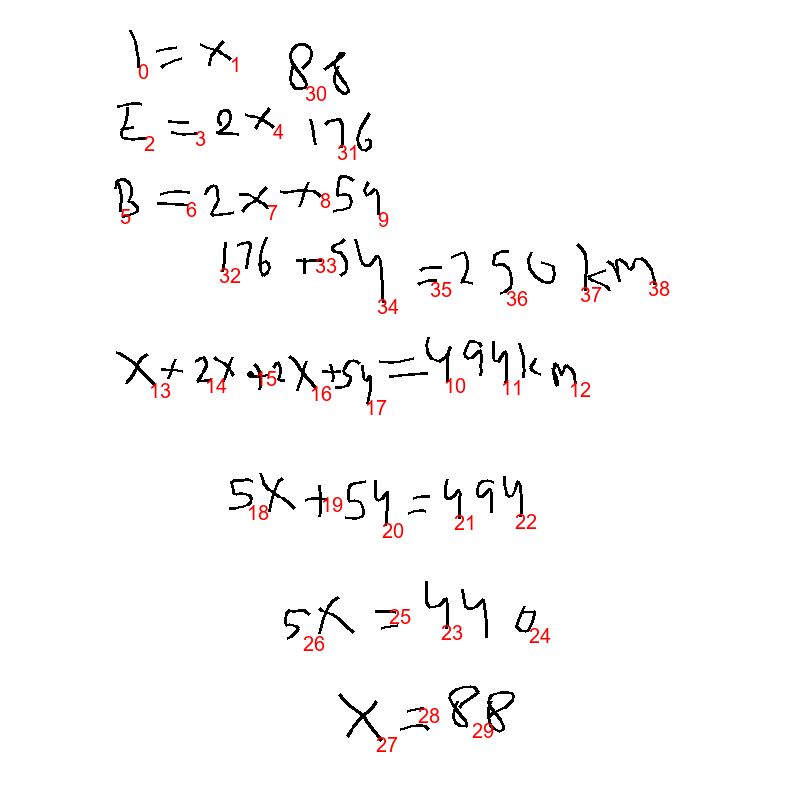 I = x 88
0 1 30
E = 2x 176
2 3 4 31
B = 2x + 54
5 6 7 8 9
176 + 54 = 250 km
32 33 34 35 36 37 38
x + 2x + 2x + 54 = 494 km
13 14 15 16 17 10 11 12
5x + 54 = 494
18 19 20 21 22
5x = 440
26 25 23 24
x = 88
27 28 29